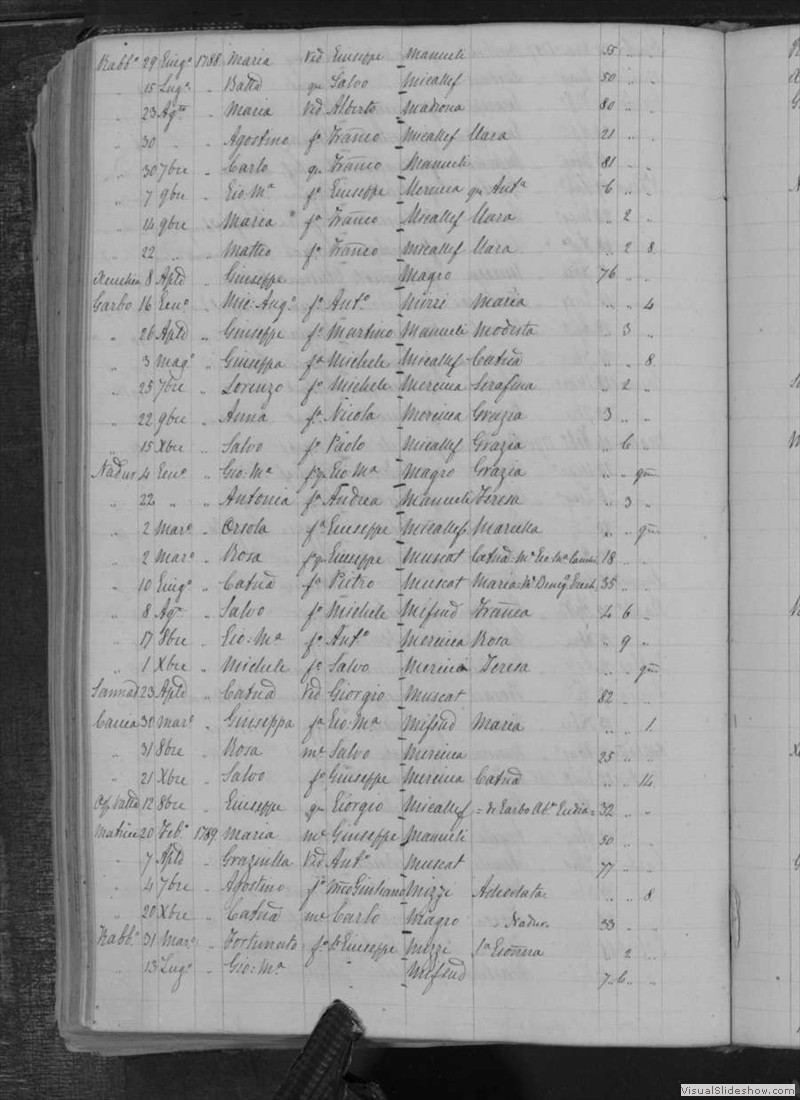 Rabb.o 29 Giug.o 1788 Maria Vid Giuseppe Manueli 55 " "
" 15 Lug.o " Battd qu Salvo Micallef 50 " "
" 23 Ag.to " Maria Vid Alberto Madiona 80 " "
" 30 " " Agostino fo Franco Micallef Clara 21 " "
" 30 7bre " Carlo qu Franco Manueli 81 " "
" 7 9bre " Gio: Ma fo Giuseppe Mercieca qu Anto 6 " "
" 14 9bre " Maria fa Franco Micallef Clara " 2 "
" 22 " " Matteo fo Franco Micallef Clara " 2 8
Xeuchia 8 Aple " Giuseppe Magro 76 " "
Garbo 16 Gen.o " Mic: Ang.o fo Anto Mizzi Maria " " 4
" 26 Aple " Giuseppe fo Martino Manueli Modesta " 3 "
" 3 Mag.o " Giuseppa fa Michele Micallef Catna " " 8
" 25 7bre " Lorenzo fo Michele Mercieca Serafina " 2 "
" 22 9bre " Anna fa Nicola Mercieca Grazia 3 " "
" 15 Xbre " Salvo fo Paolo Micallef Grazia " 6 "
Nadur 4 Gen.o " Gio: Ma fo qu Gio Ma Magro Grazia " " gni
" 22 " " Antonia fa Andrea Manueli Teresa " 3 "
" 2 Mar.o " Orsola fa Giuseppe Micallef Mariella " " gni
" 2 Mar.o " Rosa fa qu Giuseppe Muscat Catna: Me Gio Ma 18 " "
" 10 Giug.o " Catna fa Pietro Muscat Maria: 35 " "
" 8 Ag.to " Salvo fo Michele Mifsud Franca 4 6 "
" 17 8bre " Gio: Ma fo Anto Mercieca Rosa " 9 "
" 1 Xbre " Michele fo Salvo Mercieca Teresa " " gni
Sannat 23 Aple " Catna Vid Giorgio Muscat 82 " "
Caccia 30 Mar.o " Giuseppa fa Gio Ma Mifsud Maria " " 1
" 31 8bre " Rosa me Salvo Mercieca 25 " "
" 21 Xbre " Salvo fo Giuseppe Mercieca Catna " " 14
12 8bre " Giuseppe qu Giorgio Micallef = di Garbo 32 " "
Matrice 20 Feb.o 1789 Maria me Giuseppe Manueli 50 " "
" 7 Aple " Graziulla Vid Anto Muscat 77 " "
" 4 7bre " Agostino fo Giuliano Mizzi Adeodata " " 8
" 20 Xbre " Catna me Carlo Magro Nadur 33 " "
Rabb.o 31 Mar.o " Fortunato fo Giuseppe Mizzi " 2 "
" 13 Lug.o " Gio: Ma Mifsud 7 6 "
VisualSlideshow.com